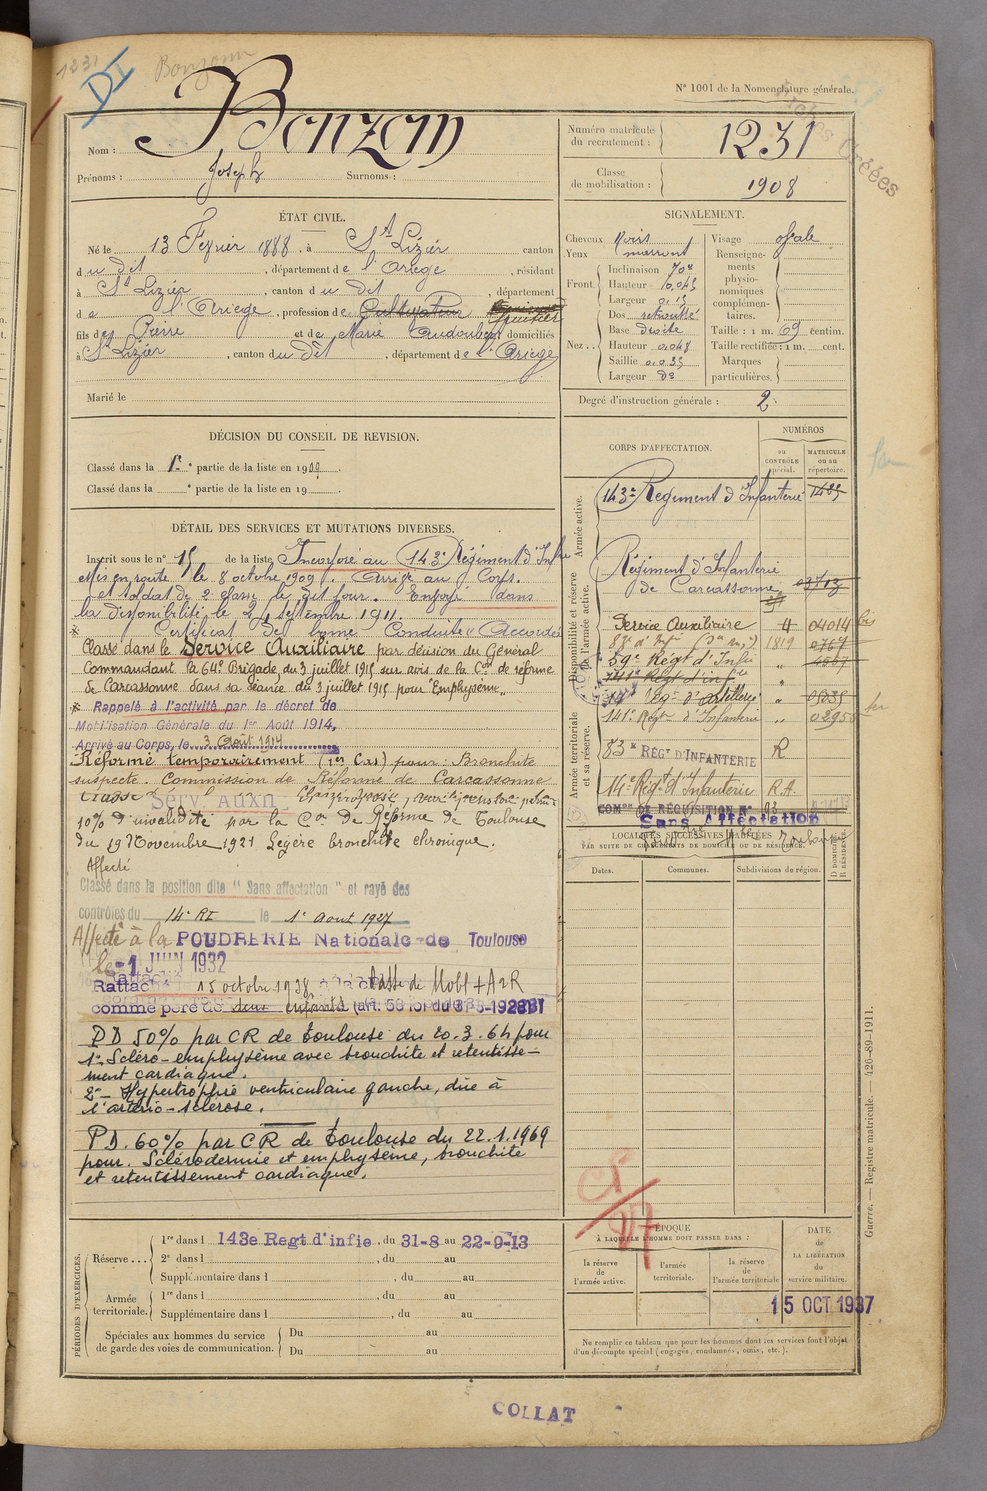 1231
DI
Bonzom
N° 1001 de la Nomenclature générale.
Nom : Bonzom
Prénoms : Joseph Surnoms :
Numéro matricule du recrutement : 1231
Classe de mobilisation : 1908
ÉTAT CIVIL.
Né le 13 Février 1888, à St Lizier, canton
du dit, département de l'Ariège, résidant
à St Lizier, canton du dit, département
de l'Ariège, profession de Cultivateur
fils de Pierre et de Marie domiciliés
à St Lizier, canton du dit, département de l'Ariège
Marié le
SIGNALEMENT.
Cheveux noirs
Yeux marrons
Front. Inclinaison
Hauteur 0,045
Largeur
Nez.. Dos
Base droite
Hauteur 0,048
Saillie 0,035
Largeur do
Visage ovale
Renseignements physionomiques complémentaires.
Taille : 1 m. 69 centim.
Taille rectifiée : 1 m. cent.
Marques particulières.
Degré d'instruction générale : 2
DÉCISION DU CONSEIL DE REVISION.
Classé dans la 1e partie de la liste en 1909
Classé dans la e partie de la liste en 19
DÉTAIL DES SERVICES ET MUTATIONS DIVERSES.
Inscrit sous le n° 15 de la liste Incorporé au 143e Régiment d'Infie
Mis en route le 8 octobre 1909. Arrivé au Corps
et soldat de 2e classe le dit jour. Envoyé dans
la disponibilité le 24 septembre 1911.
Certificat de bonne Conduite "Accordé"
Classé dans le Service Auxiliaire par décision du Général
Commandant la 64e Brigade du 3 juillet 1915 sur avis de la Con de réforme
de Carcassonne dans sa séance du 3 juillet 1915 pour "Emphysème"
* Rappelé à l'activité par le décret de
Mobilisation Générale du 1er Août 1914,
Arrivé au Corps, le 3 Août 1914
Réformé temporairement (1er Cas) pour : Bronchite
suspecte. Commission de Réforme de Carcassonne
Classé Serv. Auxre
10% d'invalidité par la Con de Réforme de Toulouse
du 19 Novembre 1921 Légère bronchite chronique.
Affecté
Classé dans la position dite "Sans affectation" et rayé des
contrôles du 14e RI le 1e Août 1927
Affecté à la POUDRERIE Nationale de Toulouse
le -1 JUIN 1932
Rattaché 15 octobre 1938 classe de Mobl + A2R
comme père de deux enfants (art. 58 loi du 31-3-1928)
PD 50% par CR de Toulouse du 20.3.64 pour
1°- Scléro-emphysème avec bronchite et retentisse-
ment cardiaque.
2°- Hypertrophie ventriculaire gauche, due à
l'artério-sclérose.
PD. 60% par CR de Toulouse du 22.1.1969
pour. Sclérodermie et emphysème, bronchite
et retentissement cardiaque.
CORPS D'AFFECTATION.
NUMÉROS
au CONTRÔLE spécial.
MATRICULE ou au répertoire.
Armée active.
143e Régiment d'Infanterie 1485
Disponibilité et réserve de l'armée active.
Régiment d'Infanterie
de Carcassonne
Service Auxiliaire 4 04014 bis
59e Régt d'Infie "
141e Régt d'infie "
Régt d'Artillerie
141e Régt d'Infanterie " 02955 ter
Armée territoriale et sa réserve.
83e RÉGT D'INFANTERIE R
14e Régt d'Infanterie R.A.
COMon DE RÉQUISITION N° 93
Sans Affectation
LOCALITÉS SUCCESSIVES HABITÉES
PAR SUITE DE CHANGEMENTS DE DOMICILE OU DE RÉSIDENCE.
Dates. Communes. Subdivisions de région. D DOMICILE R RÉSIDENCE
PÉRIODES D'EXERCICES.
Réserve... 1re dans l 143e Regt d'infie, du 31-8 au 22-9-13
2e dans l , du au
Supplémentaire dans l , du au
Armée territoriale. 1re dans l , du au
Supplémentaire dans l , du au
Spéciales aux hommes du service de garde des voies de communication. Du au
Du au
ÉPOQUE
À LAQUELLE L'HOMME DOIT PASSER DANS :
la réserve de l'armée active.
l'armée territoriale.
la réserve de l'armée territoriale
DATE DE LA LIBÉRATION du service militaire.
15 OCT 1937
Ne remplir ce tableau que pour les hommes dont les services font l'objet
d'un décompte spécial (engagés, condamnés, omis, etc.).
Guerre. — Registre matricule. — 426-89-1911.
COLLAT